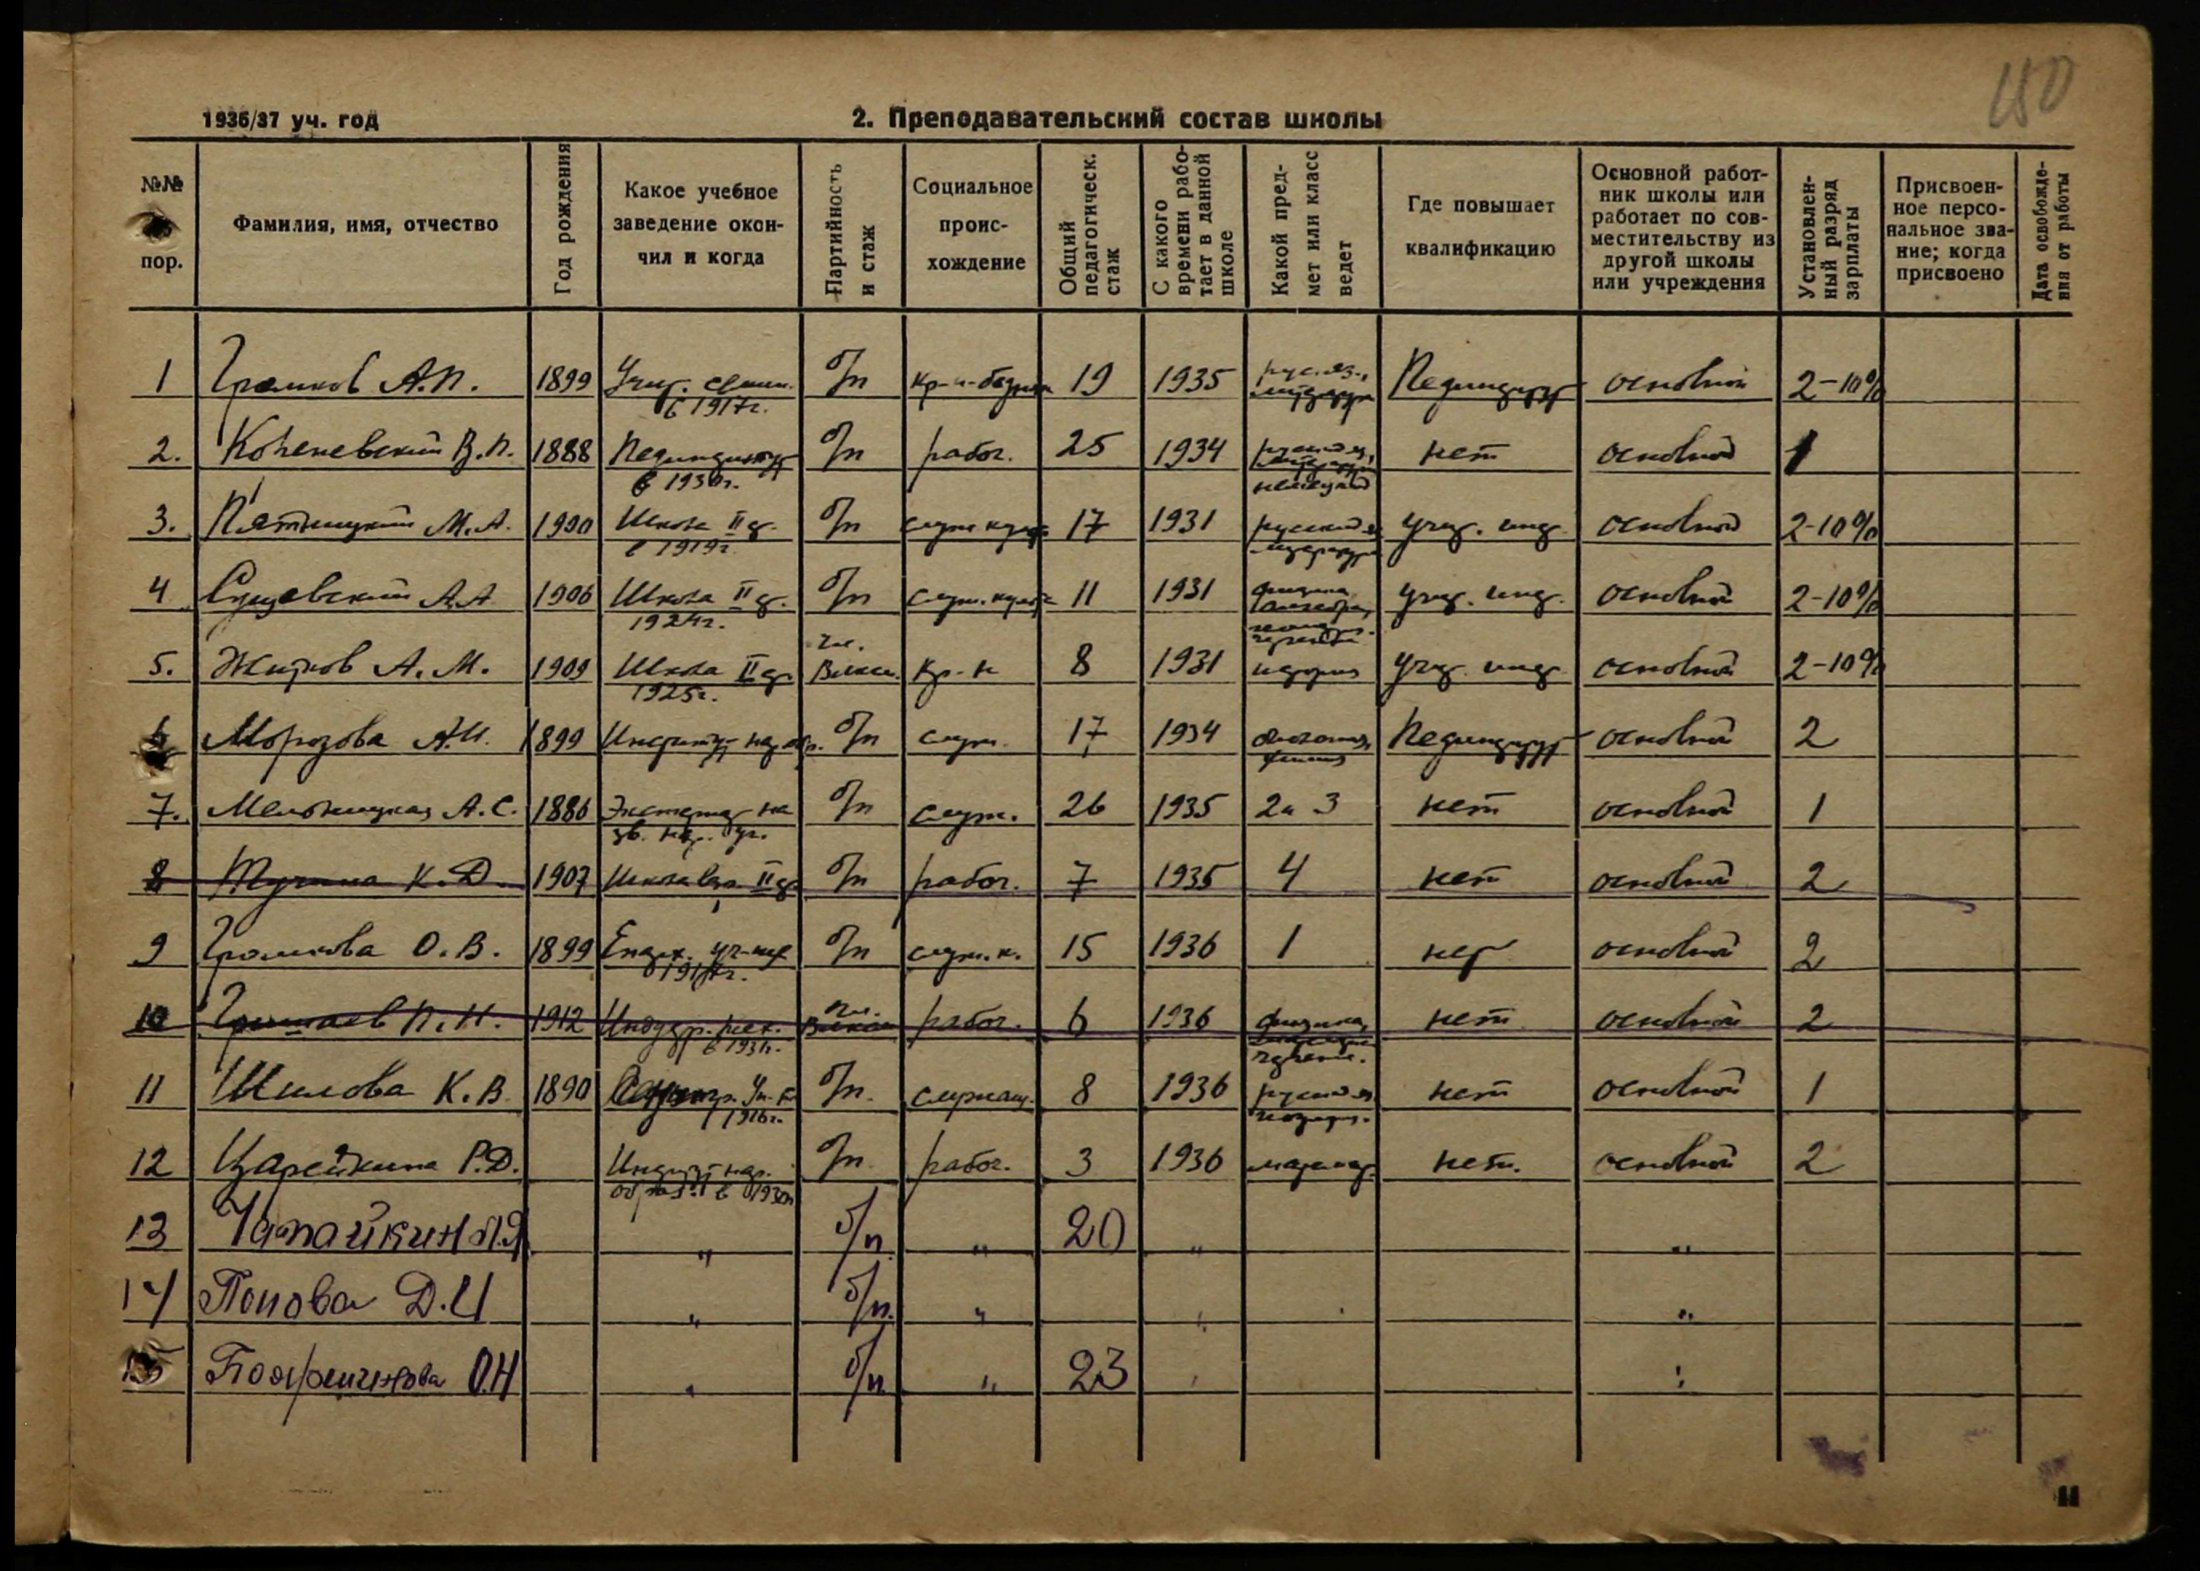 150
1936/37 уч. год
2. Преподавательский состав школы
№№ пор.
Фамилия, имя, отчество
Год рождения
Какое учебное заведение окончил и когда
Партийность и стаж
Социальное происхождение
Общий педагогическ. стаж
С какого времени работает в данной школе
Какой предмет или класс ведет
Где повышает квалификацию
Основной работник школы или работает по совместительству из другой школы или учреждения
Установленный разряд зарплаты
Присвоенное персональное звание; когда присвоено
Дата освобождения от работы
1 Громков А.П. 1899 Учит. семин. в 1917г. б/п 19 1935 рус. яз., литература Пединститут основной 2-10%
2. Кореневский В.П. 1888 Пединститут б/п рабоч. 25 1934 нет основной 1
3. Пятницкий М.А. 1900 Школа II ст. в 1919г. б/п 17 1931 русский яз. литература Учит. инст. основной 2-10%
4 А.А. 1906 Школа II ст. 1924г. б/п 11 1931 физика Учит. инст. основной 2-10%
5. Житков А.М. 1909 Школа II ст. 1925г. чл. Влксм. кр-н 8 1931 история Учит. инст. основной 2-10%
6 Морозова А.И. 1899 Институт нар. обр. б/п служ. 17 1934 химия Пединститут основной 2
7. Мельницкая А.С. 1886 б/п служ. 26 1935 2 и 3 нет основной 1
8 К.Д. 1907 Школа II ст. б/п рабоч. 7 1935 4 нет основной 2
9 Громкова О.В. 1899 Епарх. уч-ще б/п 15 1936 1 нет основной 2
10 П.Н. 1912 чл. Влксм рабоч. 6 1936 физика, черчен. нет основной 2
11 Шилова К.В. 1890 1916г. б/п. служащ. 8 1936 русский яз. нет основной 1
12 Царейкина Р.Д. Институт нар. образ. в 1930г. б/п рабоч. 3 1936 математ. нет. основной 2
13 Чапайкин П.Я. " б/п. " 20 " "
14 Попова Д.И " б/п. " " "
15 О.Н " б/п. " 23 " "
11